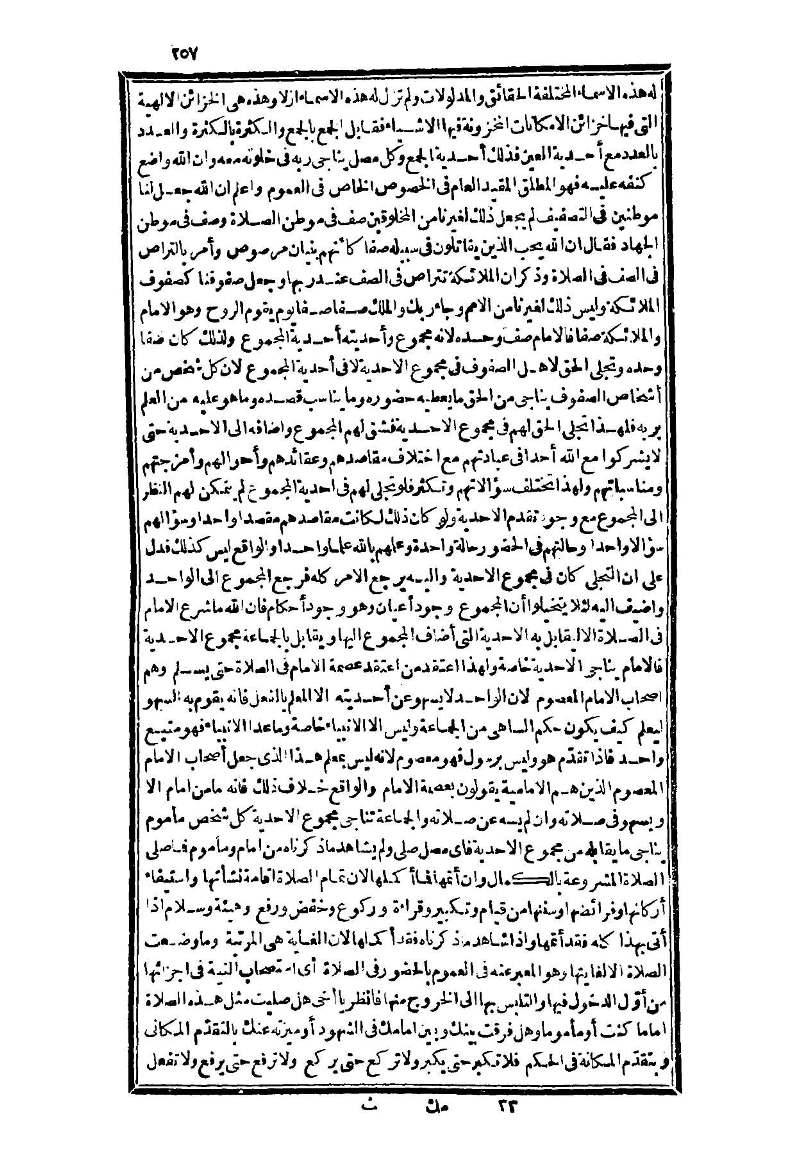 ٢٥٧
له هذه الاسماء المختلفة الحقائق والمدلولات ولم تزل له هذه الاسماء ازلا وهذه هى الخزائن الالهية
التى فيها خزائن الامكانات المخزونة فيها الاشياء فقابل الجمع بالجمع والكثرة بالكثرة والعدد
بالعدد مع أحدية العين فذلك أحدية الجمع وكل مصل يناجى ربه فى خلوته معه وان الله واضع
كنفه عليه فهو المطلق المقيد العام فى الخصوص الخاص فى العموم واعلم ان الله جعل لنا
موطنين فى التصفيف لم يجعل ذلك لغيرنا من المخلوقين صف فى موطن الصلاة وصف فى موطن
الجهاد فقال ان الله يحب الذين يقاتلون فى سبيله صفا كأنهم بنيان مرصوص وأمر بالتراص
فى الصف فى الصلاة وذكر ان الملائكة تتراص فى الصف عند ربها وجعل صفوفنا كصفوف
الملائكة وليس ذلك لغيرنا من الامم وجاء ربك والملك صفا صفا يوم يقوم الروح وهو الامام
والملائكة صفا فالامام صف وحده لانه مجموع وأحديته أحدية المجموع ولذلك كان صفا
وحده وتجلى الحق لاهل الصفوف فى مجموع الاحدية لا فى أحدية المجموع لان كل شخص من
أشخاص الصفوف يناجى من الحق ما يعطيه حضوره وما يناسب قصده وما هو عليه من العلم
بربه فلهذا تجلى الحق لهم فى مجموع الاحدية فسبق لهم المجموع واضافه الى الاحدية حتى
لا يشركوا مع الله أحدا فى عبادتهم مع اختلاف مقاصدهم وعقائدهم وأحوالهم وأمزجتهم
ومناسباتهم ولهذا تختلف سؤالاتهم وتكثر فلو تجلى لهم فى احدية المجموع لم يتمكن لهم النظر
الى المجموع مع وجود تقدم الاحدية ولو كان ذلك لكانت مقاصدهم مقصدا واحدا وسؤالهم
سؤالا واحدا وحالتهم فى الحضور حالة واحدة وعلمهم بالله علما واحدا والواقع ليس كذلك فدل
على ان التجلى كان فى مجموع الاحدية واليه يرجع الامر كله فرجع المجموع الى الواحد
واضيف اليه لئلا يتخيلوا أن المجموع وجود أعيان وهو وجود أحكام فان الله ما شرع الامام
فى الصلاة الا ليقابل به الاحدية التى أضاف المجموع اليها ويقابل بالجماعة مجموع الاحدية
فالامام يناجى الاحدية خاصة ولهذا اعتقد من اعتقد عصمة الامام فى الصلاة حتى يسلم وهم
اصحاب الامام المعصوم لان الواحد لا يسهو عن أحديته الا المعلم بالفعل فانه يقوم به السهو
ليعلم كيف يكون حكم الساهى من الجماعة وليس الا الانبياء خاصة وما عدا الانبياء فهو متبع
واحد فاذا تقدم هو وليس برسول فهو معصوم لانه ليس بمعلم هذا الذى جعل أصحاب الامام
المعصوم الذين هم الامامية يقولون بعصمة الامام والواقع خلاف ذلك فانه ما من امام الا
ويسهو فى صلاته وان لم يسه عن صلاته والجماعة تناجى مجموع الاحدية كل شخص مأموم
يناجى ما يقابله من مجموع الاحدية فاى مصل صلى ولم يشاهد ما ذكرناه من امام ومأموم فما صلى
الصلاة المشروعة بالكمال وان أتمها فما أكملها لان تمام الصلاة اقامة نشأتها واستيفاء
أركانها وفرائضها وسننها من قيام وتكبير وقراءة وركوع وخفض ورفع وهيئة وسلام اذا
أتى بهذا كله فقد أتمها واذا شاهد ما ذكرناه فقد أكملها لان الغاية هى المرتبة وما وضعت
الصلاة الا لغايتها وهو المعبر عنه فى العموم بالحضور فى الصلاة أى استصحاب النية فى اجزائها
من أول الدخول فيها والتلبس بها الى الخروج منها فانظر يا أخى هل صليت مثل هذه الصلاة
اماما كنت أو مأموما وهل فرقت بينك وبين امامك فى الشهود أو ميزته عنك بالتقدم المكانى
وبتقدم المكانة فى الحكم فلا تكبر حتى يكبر ولا تركع حتى يركع ولا ترفع حتى يرفع ولا تفعل
٣٣ مك ث